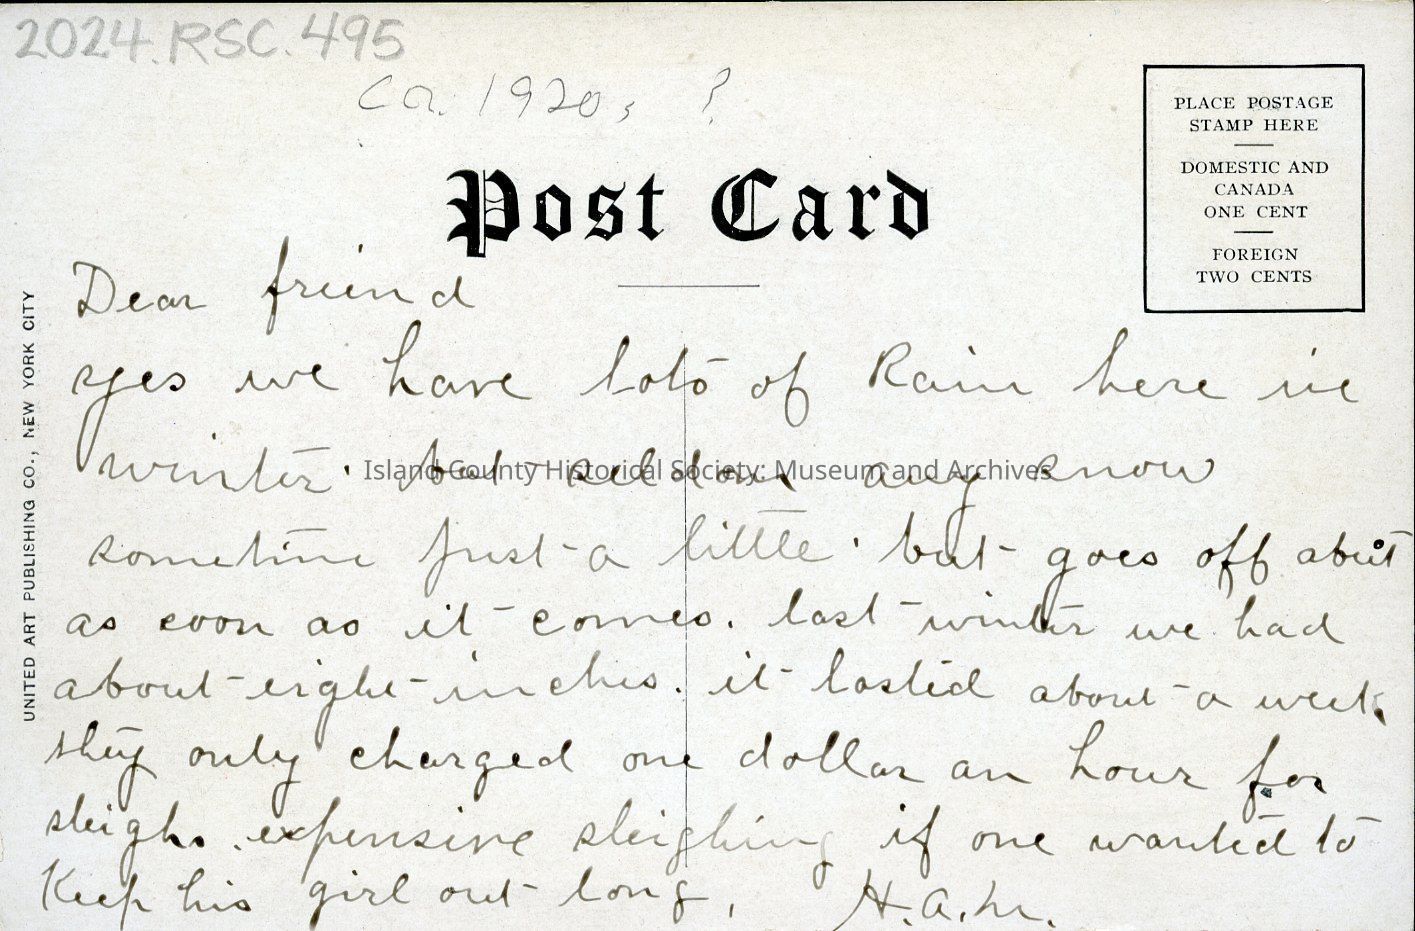 2024.RSC.495
ca. 1920s ?
PLACE POSTAGE
STAMP HERE
DOMESTIC AND
CANADA
ONE CENT
FOREIGN
TWO CENTS
Post Card
UNITED ART PUBLISHING CO., NEW YORK CITY
Dear friend
yes we have lots of Rain here in
winter. but seldom any snow
Island County Historical Society: Museum and Archives
sometime just a little. but goes off about
as soon as it comes. last winter we had
about eight inches. it lasted about a week.
they only charged one dollar an hour for
sleighs. expensive sleighing if one wanted to
Keep his girl out long, H.A.M.